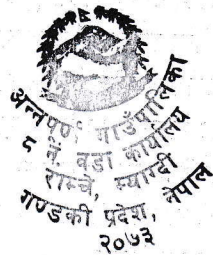 अन्नपूर्ण गाउँपालिका
८ नं. वडा कार्यालय
राम्चे, म्याग्दी
गण्डकी प्रदेश, नेपाल
२०७३